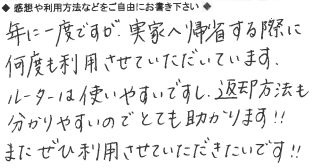 ◆ 感想や利用方法などをご自由にお書き下さい ◆
年に一度ですが、実家へ帰省する際に
何度も利用させていただいています。
ルーターは使いやすいですし、返却方法も
分かりやすいのでとても助かります!!
またぜひ利用させていただきたいです!!